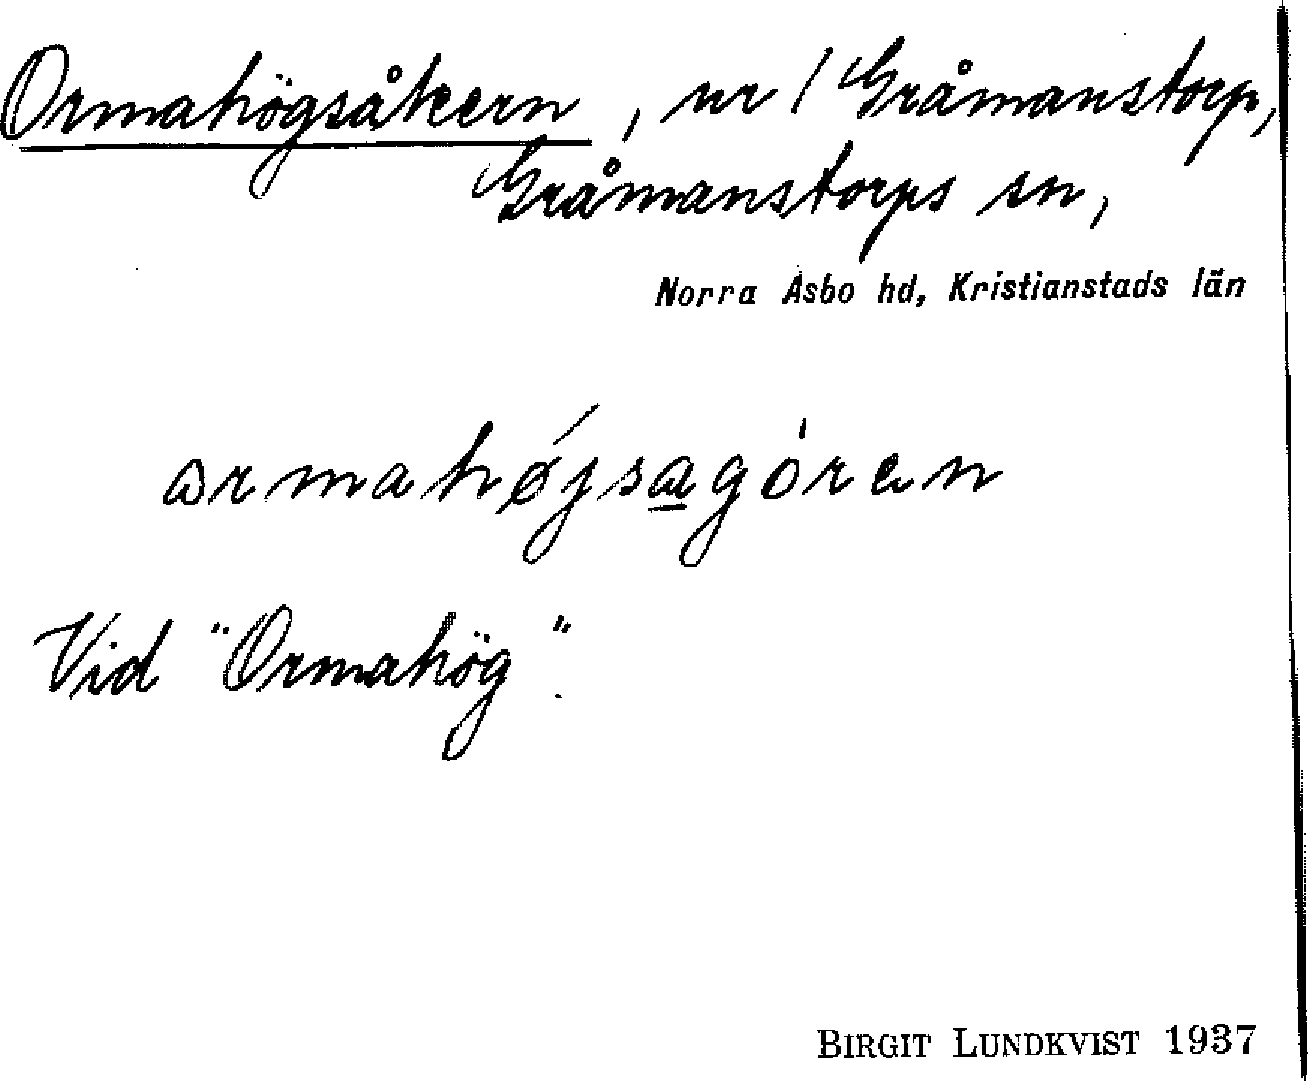 Ormahögsåkern, nr 1 Gråmanstorp,
Gråmanstorps sn,
Norra Åsbo hd, Kristianstads län
ormahǿjsagóren
Vid "Ormahög".
BIRGIT LUNDKVIST 1937